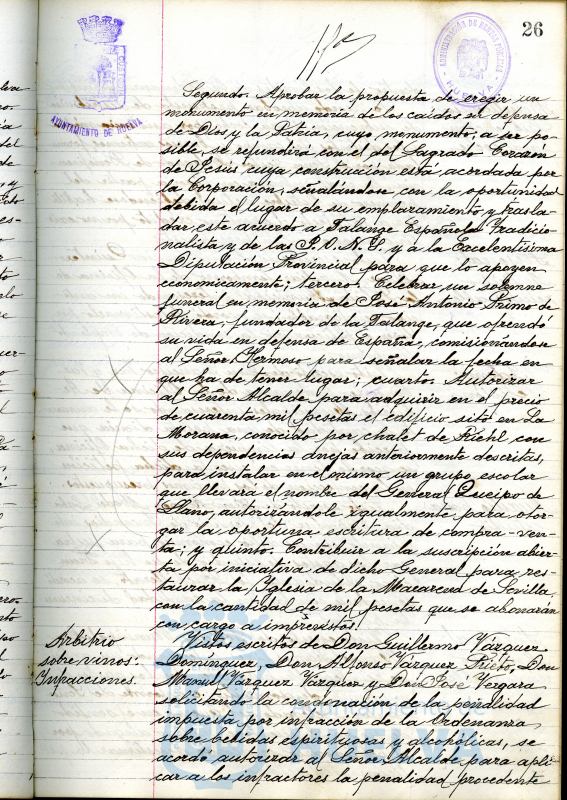 26
AYUNTAMIENTO DE HUELVA
ADMINISTRACIÓN DE RENTAS PÚBLICAS
HUELVA
Segundo. Aprobar la propuesta de eregir un
monumento en memoria de los caidos en defensa
de Dios y la Patria, cuyo monumento, a ser po-
sible, se refundirá con el del Sagrado Corazón
de Jesús cuya construcción está acordada por
la Corporación, señalándose con la oportunidad
debida el lugar de su emplazamiento y trasla-
dar este acuerdo a Falange Española Tradicio-
nalista y de las J.O.N.S. y a la Excelentísima
Diputación Provincial para que lo apoyen
económicamente; tercero. Celebrar un solemne
funeral en memoria de José Antonio Primo de
Rivera, fundador de la Falange, que ofrendó
su vida en defensa de España, comisionándose
al Señor Hermoso para señalar la fecha en
que ha de tener lugar; cuarto. Autorizar
al Señor Alcalde para adquirir en el precio
de cuarenta mil pesetas el edificio sito en La
Morana, conocido por chalet de Riehl con
sus dependencias anejas anteriormente descritas,
para instalar en el mismo un grupo escolar
que llevara el nombre del General Queipo de
Llano, autorizándole igualmente para otor-
gar la oportuna escritura de compra-ven-
ta; y quinto. Contribuir a la suscripción abier-
ta por iniciativa de dicho General para res-
taurar la Iglesia de la Macarena de Sevilla
con la cantidad de mil pesetas que se abonarán
con cargo a imprevistos.
Arbitrio
sobre vinos:
Infracciones.
Vistos escritos de Don Guillermo Vázquez
Domínguez, Don Alfonso Vázquez Prieto, Don
Manuel Vázquez Vázquez y Don José Vergara
solicitando la condonación de la penalidad
impuesta por infracción de la Ordenanza
sobre bebidas espirituosas y alcohólicas, se
acordó autorizar al Señor Alcalde para apli-
car a los infractores la penalidad procedente